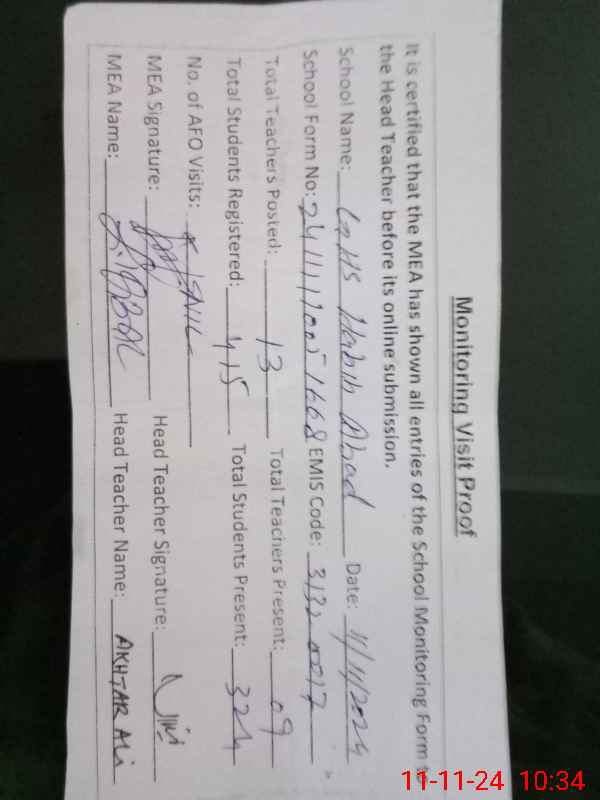 Monitoring Visit Proof
It is certified that the MEA has shown all entries of the School Monitoring Form to
the Head Teacher before its online submission.
School Name: GBHS Habib Abad Date: 11/11/2024
School Form No: EMIS Code:
Total Teachers Posted: 13 Total Teachers Present: 09
Total Students Registered: 415 Total Students Present: 324
No. of AFO Visits: NIL
MEA Signature: Head Teacher Signature:
MEA Name: IQBAL Head Teacher Name: AKHTAR Ali
11-11-24 10:34